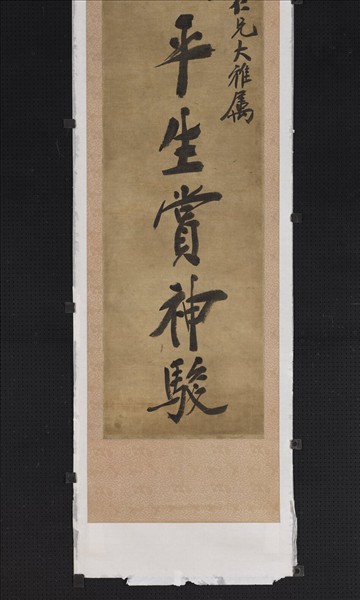 仁兄大雅属
平生賞神駿